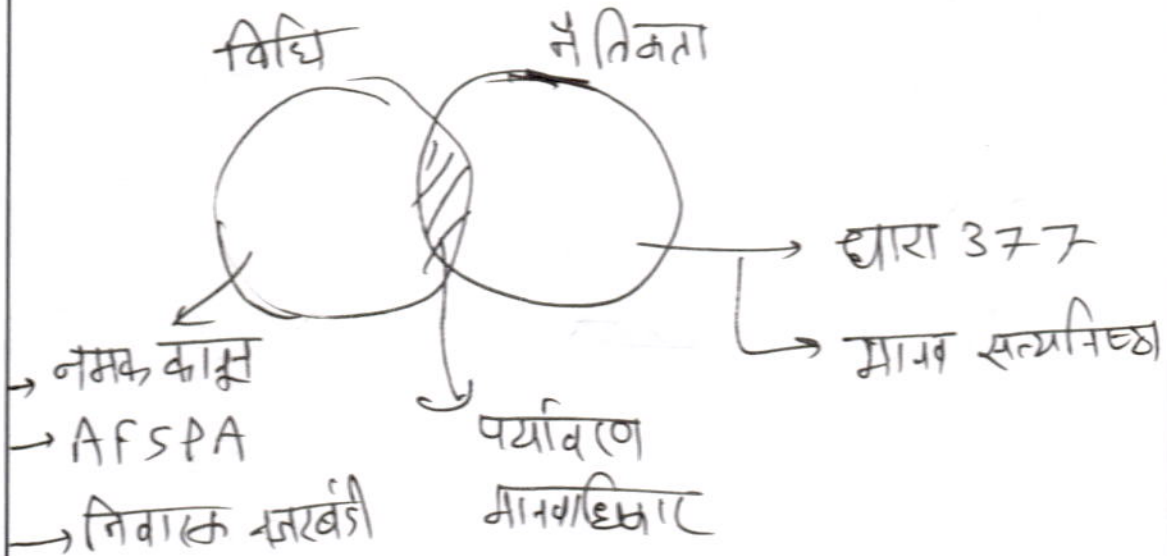 विधि नैतिकता
धारा 377
मानव सत्यनिष्ठा
→ नमक कानून
→ AFSPA
→ निवारक नजरबंदी
पर्यावरण
मानवाधिकार